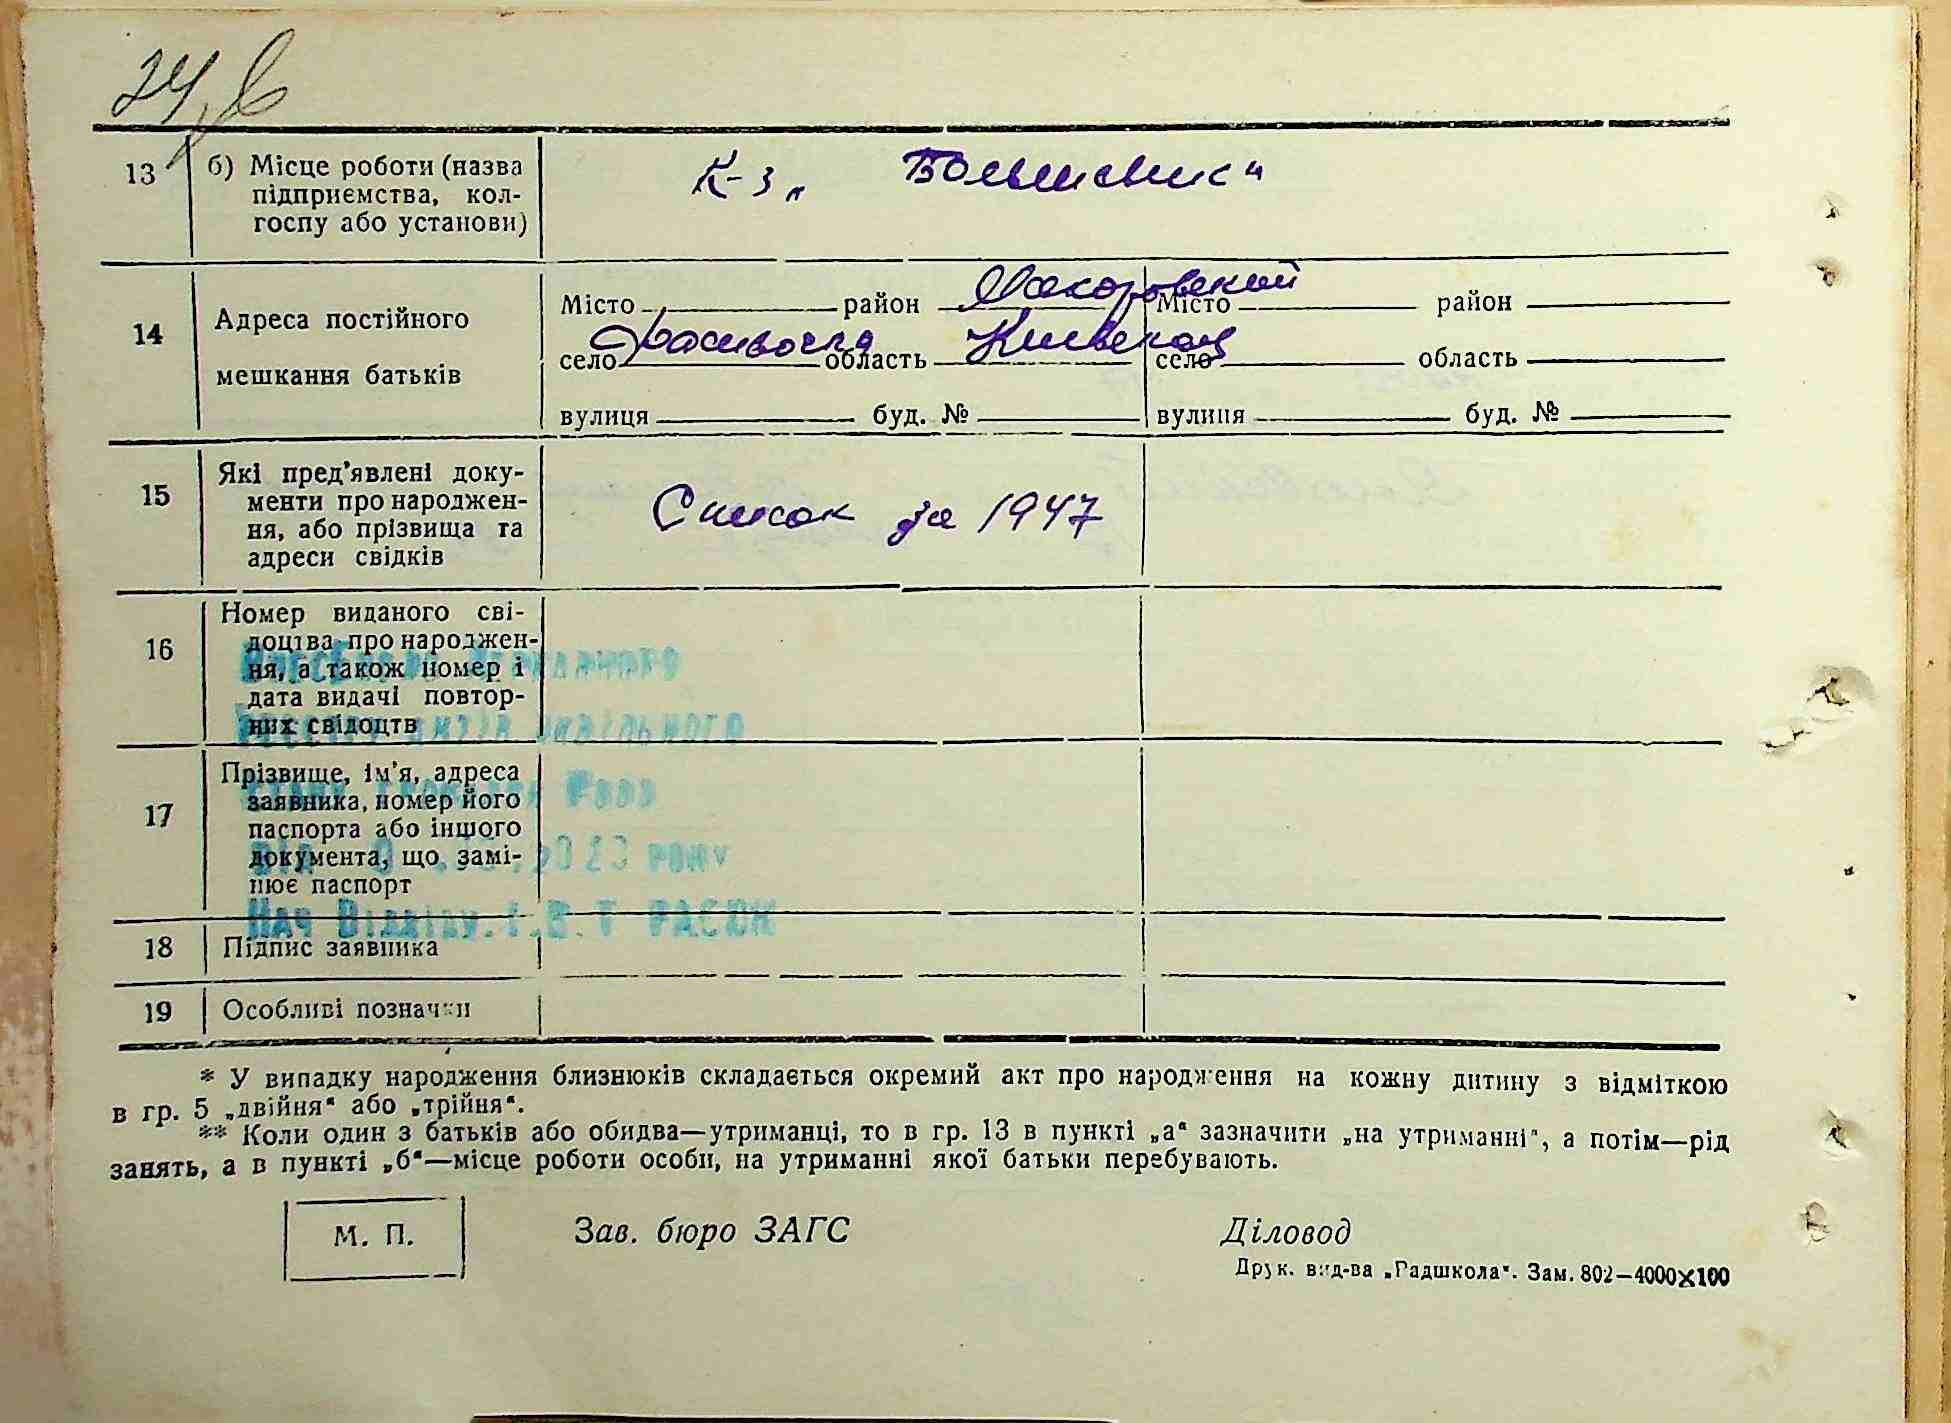 13 б) Місце роботи (назва
підприємства, кол-
госпу або установи)
К-з „ Большевик“
14 Адреса постійного
мешкання батьків
Місто район Макаровский Місто район
село область Киевская село область
вулиця буд. № вулиця буд. №
15 Які пред’явлені доку-
менти про народжен-
ня, або прізвища та
адреси свідків
Список за 1947
16 Номер виданого сві-
доцтва про народжен-
ня, а також номер і
дата видачі повтор-
них свідоцтв
17 Прізвище, ім’я, адреса
заявника, номер його
паспорта або іншого
документа, що замі-
нює паспорт
Нач Відділу
18 Підпис заявника
19 Особливі позначки
* У випадку народження близнюків складається окремий акт про народження на кожну дитину з відміткою
в гр. 5 „двійня“ або „трійня“.
** Коли один з батьків або обидва—утриманці, то в гр. 13 в пункті „а“ зазначити „на утриманні“, а потім—рід
занять, а в пункті „б“—місце роботи особи, на утриманні якої батьки перебувають.
М. П. Зав. бюро ЗАГС Діловод
Друк. вид-ва „Радшкола“. Зам. 802—4000×100